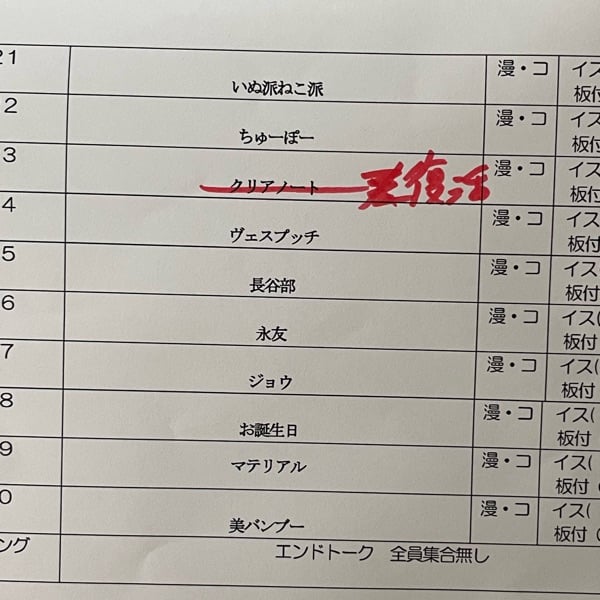 21 いぬ派ねこ派 漫・コ イス
板付
2 ちゅーぽー 漫・コ イス(
板付
3 クリアノート 復活 漫・コ イス(
板付
4 ヴェスプッチ 漫・コ イス(
板付
5 長谷部 漫・コ イス(
板付
6 永友 漫・コ イス(
板付
7 ジョウ 漫・コ イス(
板付
8 お誕生日 漫・コ イス(
板付
9 マテリアル 漫・コ イス(
板付 (
0 美バンブー 漫・コ イス(
板付 (
ング エンドトーク 全員集合無し